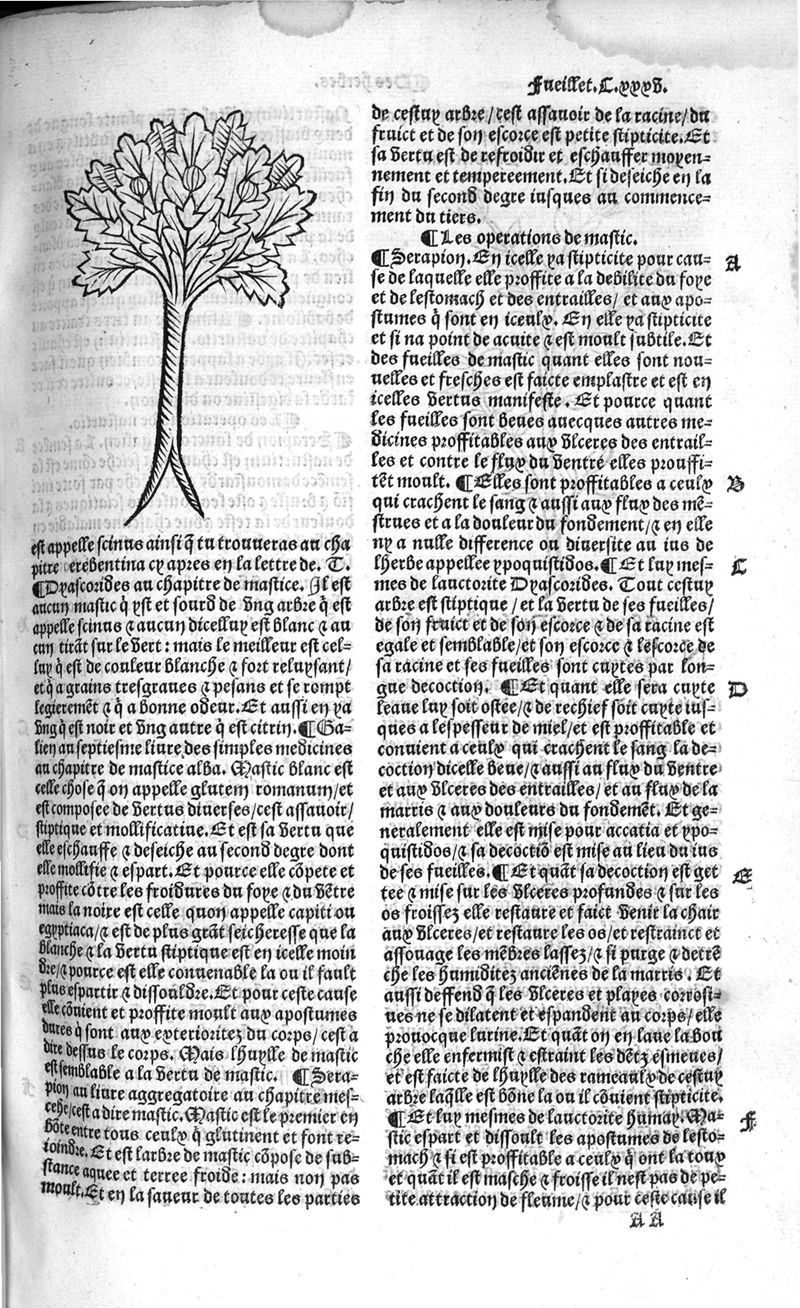 Fueillet.C.xxxv.
est appelle scinus ainsi q̃ tu trouueras au cha
pitre terebentina cy apres en la lettre de. T.
¶Dyascorides au chapitre de mastice. Il est
aucun mastic q̃ yst et sourd de vng arbre q̃ est
appelle scinus ⁊ aucun dicelluy est blanc ⁊ au
cun tirãt sur le vert: mais le meilleur est cel-
luy q̃ est de couleur blanche ⁊ fort reluysant/
et q̃ a grains tresgraues ⁊ pesans et se rompt
legieremẽt ⁊ q̃ a bonne odeur. Et aussi en ya
vng q̃ est noir et vng autre q̃ est citrin. ¶Ga-
lien au septiesme liure des simples medicines
au chapitre de mastice alba. Mastic blanc est
celle chose q̃ on appelle glutem romanum/et
est composee de vertus diuerses/cest assauoir/
stiptique et mollificatiue. Et est sa vertu que
elle eschauffe ⁊ deseiche au second degre dont
elle mollifie ⁊ espart. Et pource elle cõpete et
proffite cõtre les froidures du foye ⁊ du vẽtre
mais la noire est celle quon appelle capiti ou
egyptiaca/⁊ est de plus grãt seicheresse que la
blanche ⁊ la vertu stiptique est en icelle moin
dre/⁊ pource est elle conuenable la ou il fault
plus espartir ⁊ dissouldre. Et pour ceste cause
elle cõuient et proffite moult aux apostumes
dures q̃ sont aux exterioritez du corps/cest a
dire dessus le corps. Mais lhuylle de mastic
est semblable a la vertu de mastic. ¶Sera-
pion au liure aggregatoire au chapitre mes-
cehe/cest a dire mastic. Mastic est le premier en
bõte entre tous ceulx q̃ glutinent et font re-
ioindre. Et est larbre de mastic cõpose de sub-
stance aquee et terree froide: mais non pas
moult. Et en la saueur de toutes les parties
de cestuy arbre/cest assauoir de la racine/du
fruict et de son escorce est petite stipticite. Et
sa vertu est de refroidir et eschauffer moyen-
nement et tempereement. Et si deseiche en la
fin du second degre iusques au commence-
ment du tiers.
¶Les operations de mastic.
¶Serapion. En icelle ya stipticite pour cau- A
se de laquelle elle proffite a la debilite du foye
et de lestomach et des entrailles/ et aux apo-
stumes q̃ sont en iceulx. En elle ya stipticite
et si na point de acuite ⁊ est moult subtile. Et
des fueilles de mastic quant elles sont nou-
uelles et fresches est faicte emplastre et est en
icelles vertus manifeste. Et pource quant
les fueilles sont beues auecques autres me-
dicines proffitables aux vlceres des entrail-
les et contre le flux du ventre elles prouffi-
tẽt moult. ¶Elles sont proffitables a ceulx B
qui crachent le sang ⁊ aussi aux flux des mẽ-
strues et a la douleur du fondement/⁊ en elle
ny a nulle difference ou diuersite au ius de
lherbe appellee ypoquistidos. ¶Et luy mes- C
mes de lauctorite Dyascorides. Tout cestuy
arbre est stiptique/et la vertu de ses fueilles/
de son fruict et de son escorce ⁊ de sa racine est
egale et semblable/et son escorce ⁊ lescorce de
sa racine et ses fueilles sont cuytes par lon-
gue decoction. ¶Et quant elle sera cuyte D
leaue luy soit ostée/⁊ de rechief soit cuyte ius-
ques a lespesseur de miel/et est proffitable et
conuient a ceulx qui crachent le sang la de-
coction dicelle beue/⁊ aussi au flux du ventre
et aux vlceres des entrailles/et au flux de la
marris ⁊ aux douleurs du fondemẽt. Et ge-
neralement elle est mise pour accatia et ypo-
quistidos/⁊ sa decoctiõ est mise au lieu du ius
de ses fueilles. ¶Et quãt sa decoction est get E
tee ⁊ mise sur les vlceres profundes ⁊ sur les
os froissez elle restaure et faict venir la chair
aux vlceres/et restaure les os/et restrainct et
assouage les mẽbres lassez/⁊ si purge ⁊ detrẽ
che les humiditez anciẽnes de la marris. Et
aussi deffend q̃ les vlceres et playes corrosi-
ues ne se dilatent et espandent au corps/elle
prouocque lurine. Et quãt on en laue la bou
che elle enfermist ⁊ estraint les dẽtz esmeues/
et est faicte de lhuylle des rameaulx de cestuy
arbre laq̃lle est bõne la ou il cõuient stipticite.
¶Et luy mesmes de lauctorite humay. Ma- F
stic espart et dissoult les apostumes de lesto-
mach ⁊ si est proffitable a ceulx q̃ ont la toux
et quãt il est masche ⁊ froisse il nest pas de pe-
tite attraction de fleume/⁊ pour ceste cause il
AA